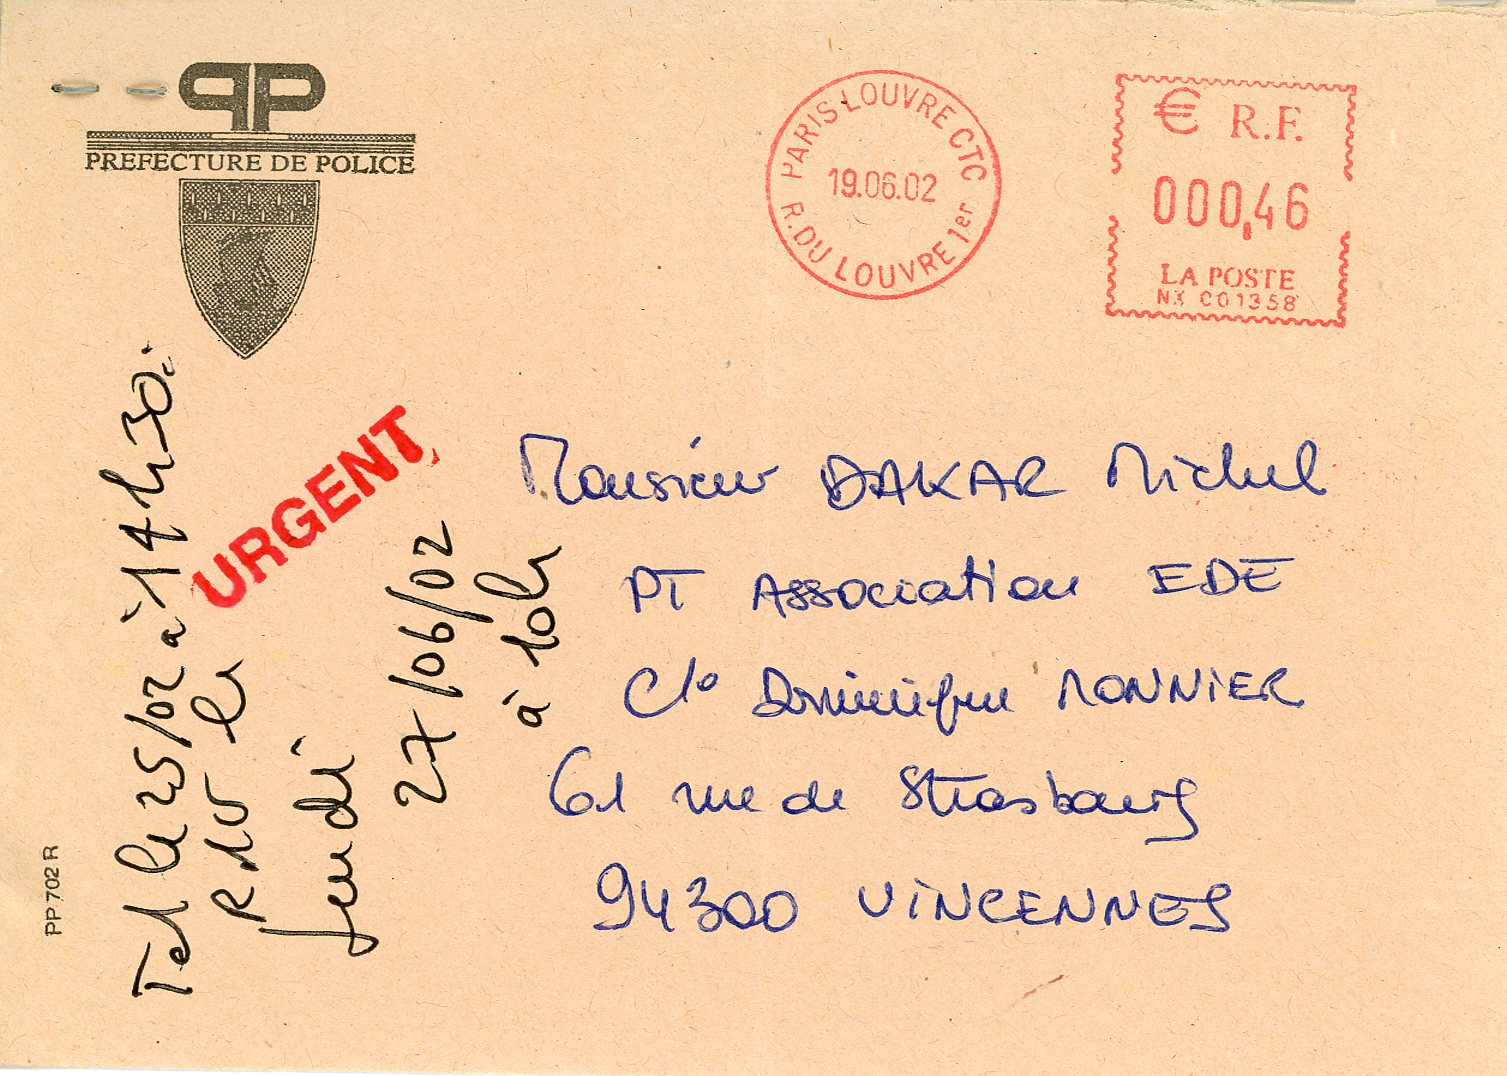 PP
PREFECTURE DE POLICE
PARIS LOUVRE CTC
19.06.02
R. DU LOUVRE 1er
€ R.F.
000,46
LA POSTE
NX 001358
URGENT
Monsieur DAKAR Michel
PT Association EDE
C/o Dominique MONNIER
61 rue de Strasbourg
94300 VINCENNES
Tel le 25/02 à 14h30.
RDV le
Jeudi
27/06/02
à 10h
PP 702 R